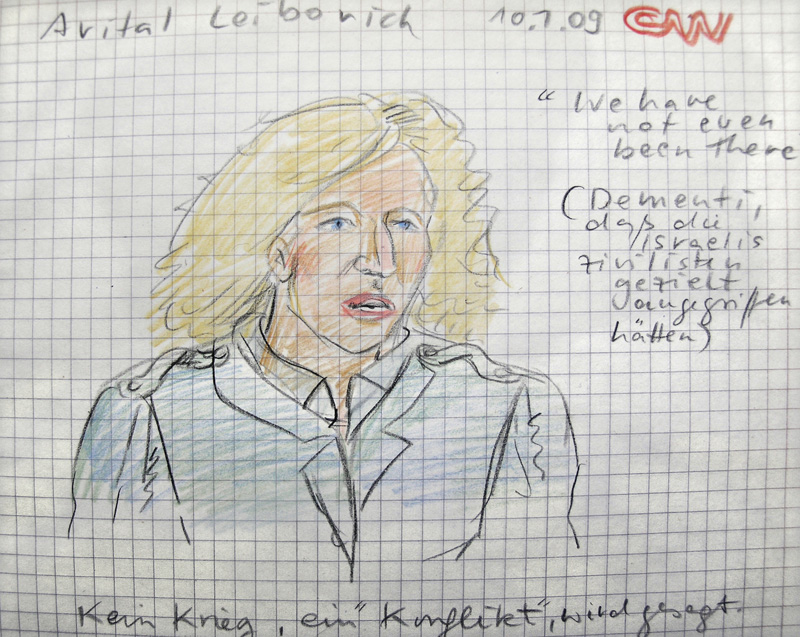 Avital Leibovich 10.1.09 CNN
“ We have
not even
been there
(Dementi,
daß die
Israelis
zivilisten
gezielt
angegriffen
hätten)
Kein Krieg, ein "Konflikt", wird gesagt.